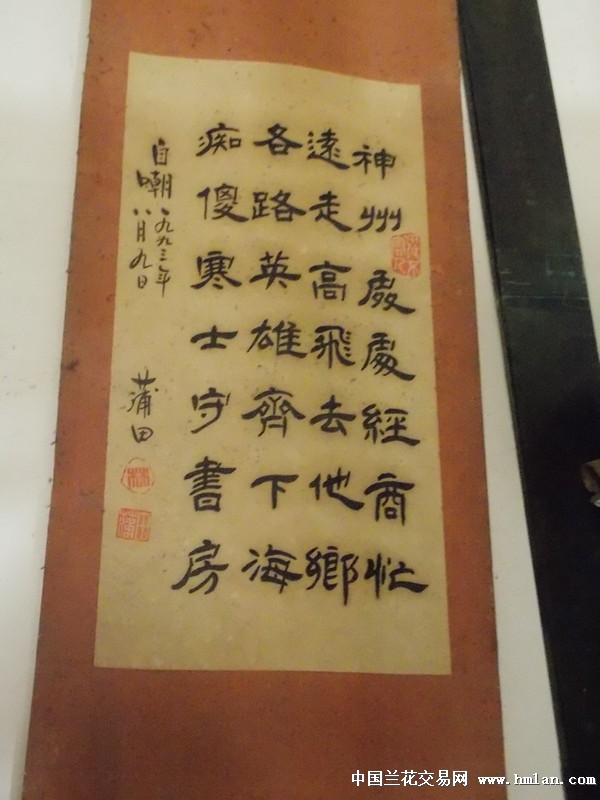 神州處處經商忙
遠走高飛去他鄉
各路英雄齊下海
痴傻寒士守書房
自嘲 一九九三年
八月九日
蒲田
中国兰花交易网 www.hmlan.com